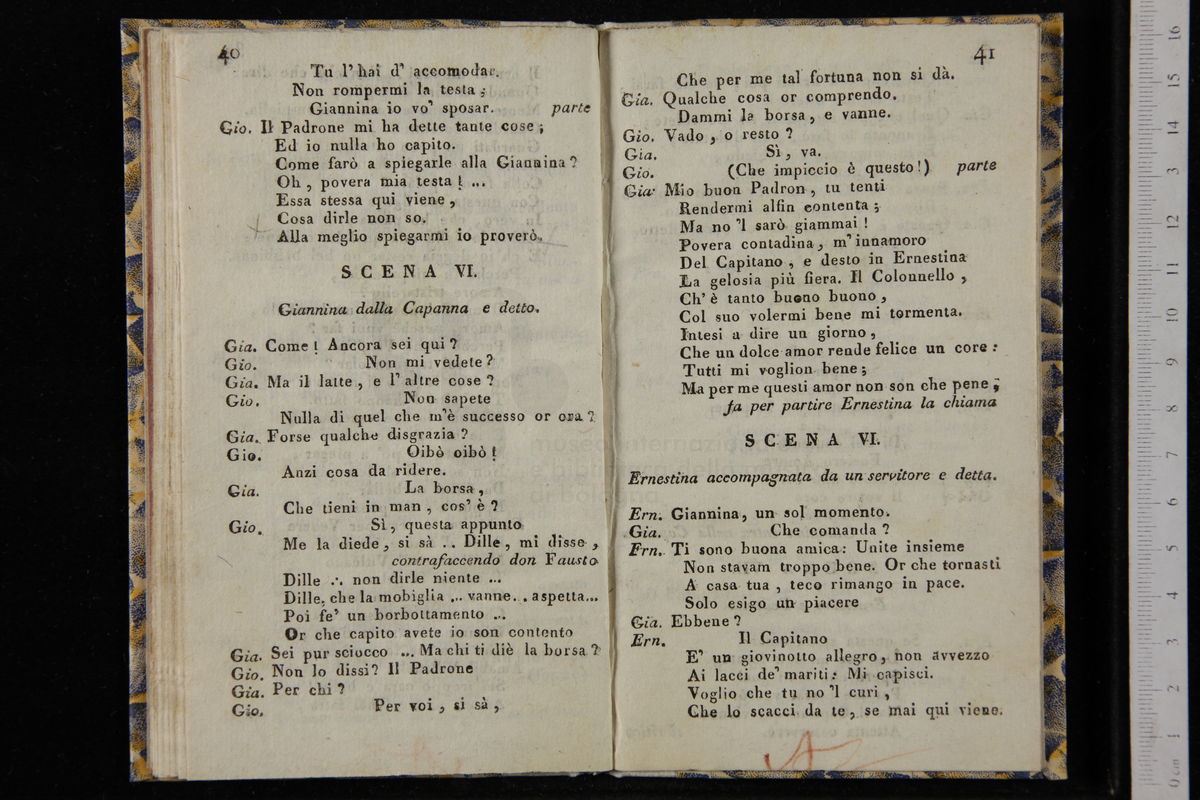 40
Tu l' hai d' accomodar.
Non rompermi la testa;
Giannina io vo' sposar. parte
Gio. Il Padrone mi ha dette tante cose;
Ed io nulla ho capito.
Come farò a spiegarle alla Giannina?
Oh, povera mia testa! ...
Essa stessa qui viene,
Cosa dirle non so.
Alla meglio spiegarmi io proverò.
SCENA VI.
Giannina dalla Capanna e detto.
Gia. Come! Ancora sei qui?
Gio. Non mi vedete?
Gia. Ma il latte, e l' altre cose?
Gio. Non sapete
Nulla di quel che m'è successo or ora?
Gia. Forse qualche disgrazia?
Gio. Oibò oibò!
Anzi cosa da ridere.
Gia. La borsa,
Che tieni in man, cos' è?
Gio. Sì, questa appunto
Me la diede, si sà .. Dille, mi disse,
contrafaccendo don Fausto
Dille .·. non dirle niente ...
Dille, che la mobiglia ... vanne. . aspetta...
Poi fe' un borbottamento ...
Or che capito avete io son contento
Gia. Sei pur sciocco ... Ma chi ti diè la borsa?
Gio. Non lo dissi? Il Padrone
Gia. Per chi?
Gio. Per voi, si sà,
41
Che per me tal fortuna non si dà.
Gia. Qualche cosa or comprendo.
Dammi la borsa, e vanne.
Gio. Vado, o resto?
Gia. Sì, va.
Gio. (Che impiccio è questo!) parte
Gia. Mio buon Padron, tu tenti
Rendermi alfin contenta;
Ma no 'l sarò giammai!
Povera contadina, m' innamoro
Del Capitano, e desto in Ernestina
La gelosia più fiera. Il Colonnello,
Ch' è tanto buono buono,
Col suo volermi bene mi tormenta.
Intesi a dire un giorno,
Che un dolce amor rende felice un core:
Tutti mi voglion bene;
Ma per me questi amor non son che pene;
fa per partire Ernestina la chiama
SCENA VI.
Ernestina accompagnata da un servitore e detta.
Ern. Giannina, un sol momento.
Gia. Che comanda?
Ern. Ti sono buona amica: Unite insieme
Non stavam troppo bene. Or che tornasti
A casa tua, teco rimango in pace.
Solo esigo un piacere
Gia. Ebbene?
Ern. Il Capitano
E' un giovinotto allegro, non avvezzo
Ai lacci de' mariti: Mi capisci.
Voglio che tu no 'l curi,
Che lo scacci da te, se mai qui viene.
museo internazionale
e biblioteca della musica
di bologna
0 cm 1 2 3 4 5 6 7 8 9 10 11 12 13 14 15 16